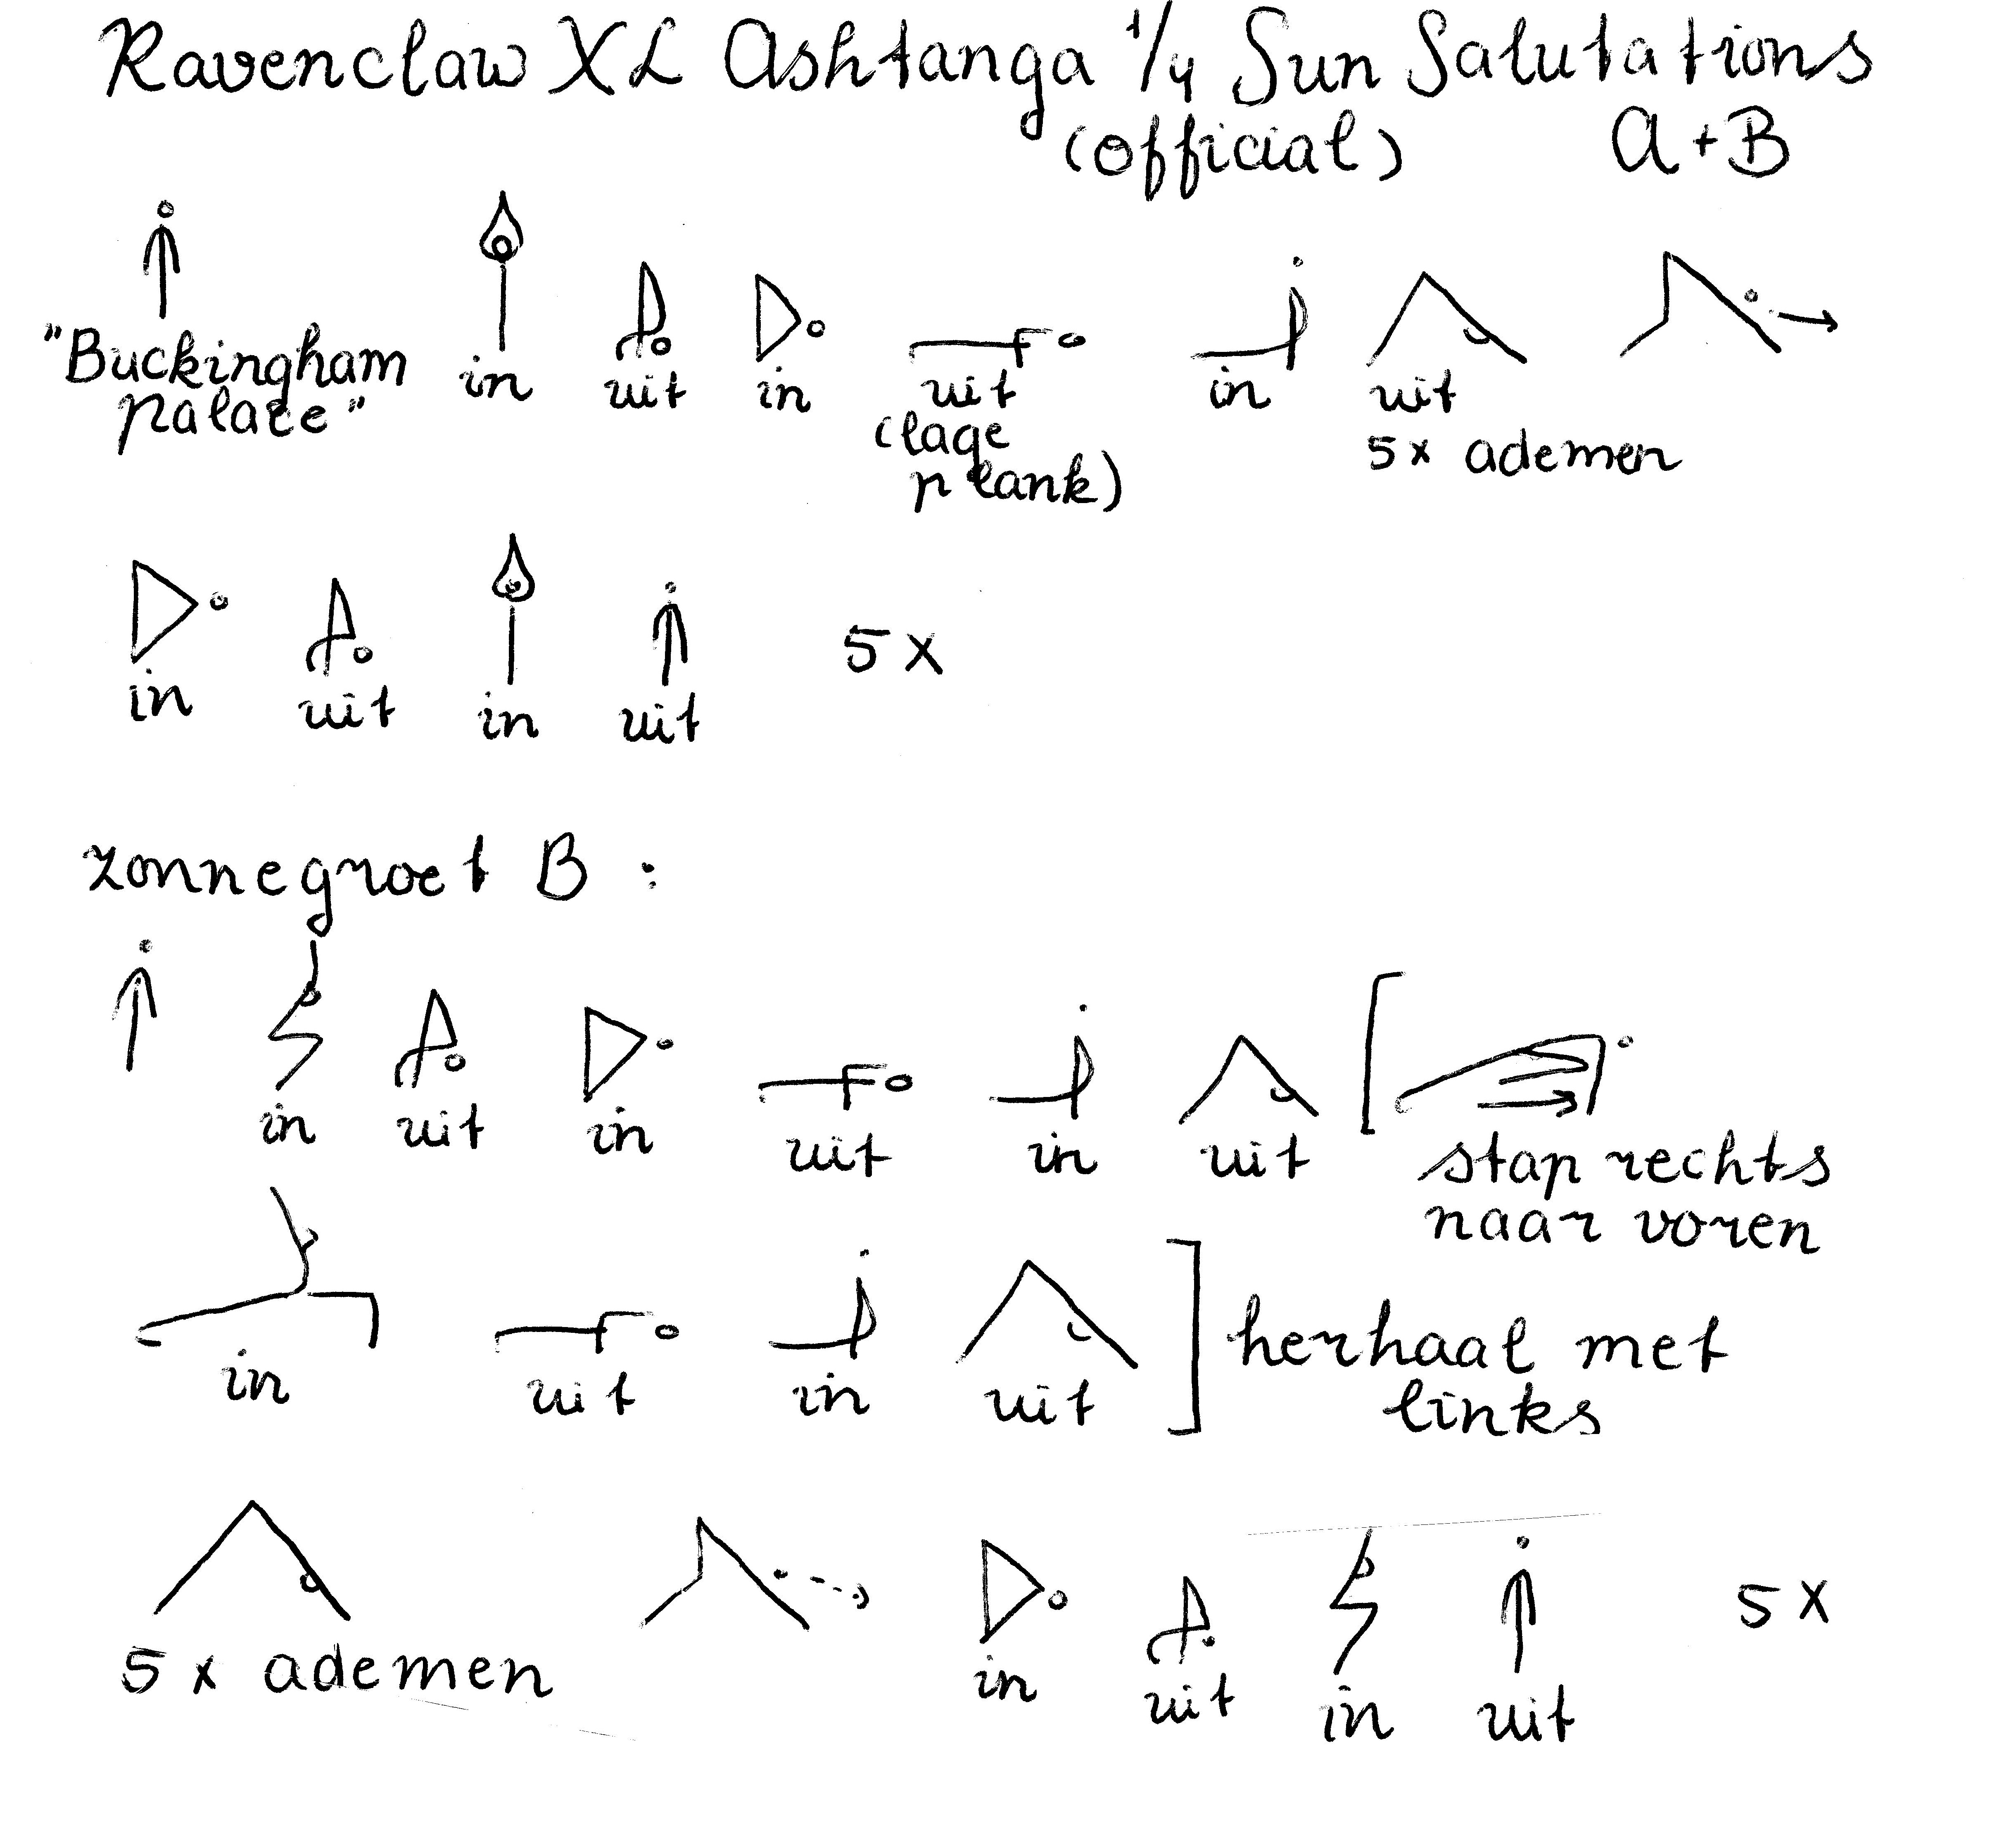 Ravenclaw XL Ashtanga 1/4 Sun Salutations
(official) A+B
"Buckingham Palace"
in uit in uit (lage plank) in uit
5x ademen
in uit in uit 5x
zonnegroet B :
in uit in uit in uit
stap rechts
naar voren
in uit in uit
herhaal met
links
5 x ademen
in uit in uit
5 x